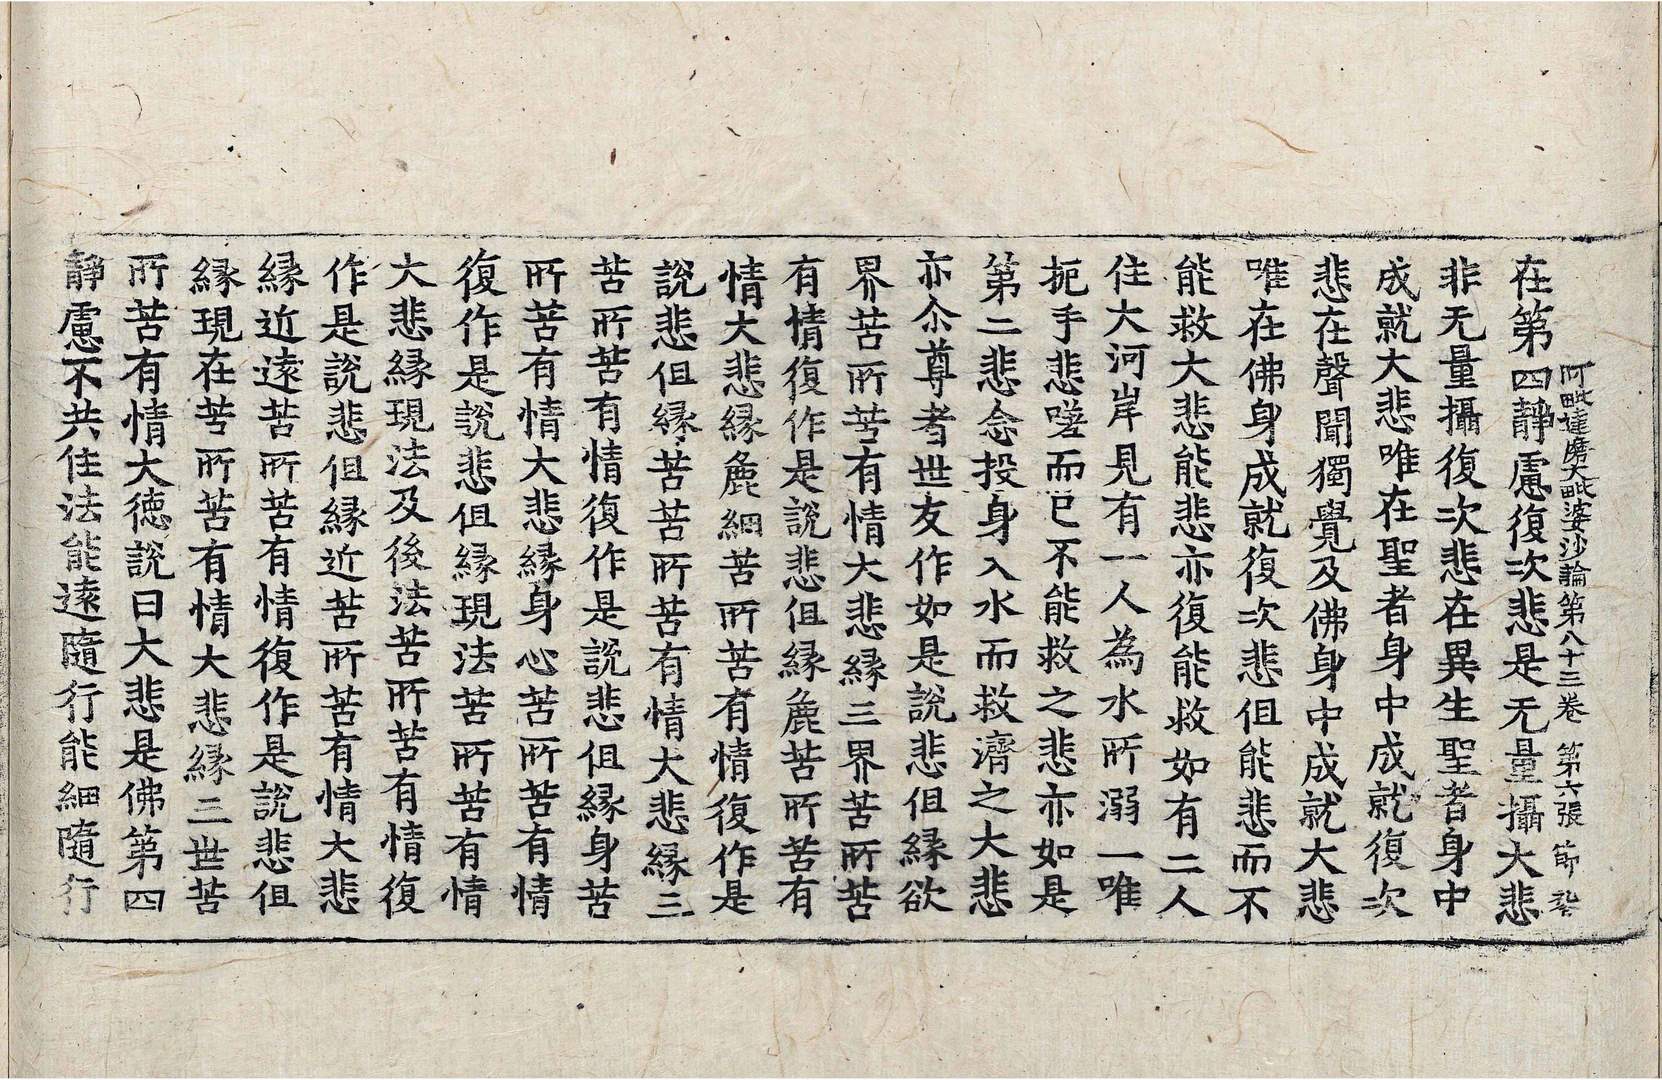 阿毗達磨大毗婆沙論第八十三卷 第六張 節
在第四靜慮復次悲是无量攝大悲
非无量攝復次悲在異生聖者身中
成就大悲唯在聖者身中成就復次
悲在聲聞獨覺及佛身中成就大悲
唯在佛身成就復次悲但能悲而不
能救大悲能悲亦復能救如有二人
住大河岸見有一人為水所溺一唯
扼手悲嗟而已不能救之悲亦如是
第二悲念投身入水而救濟之大悲
亦尒尊者世友作如是說悲但緣欲
界苦所苦有情大悲緣三界苦所苦
有情復作是說悲但緣麁苦所苦有
情大悲緣麁細苦所苦有情復作是
說悲但緣苦苦所苦有情大悲緣三
苦所苦有情復作是說悲但緣身苦
所苦有情大悲緣身心苦所苦有情
復作是說悲但緣現法苦所苦有情
大悲緣現法及後法苦所苦有情復
作是說悲但緣近苦所苦有情大悲
緣近遠苦所苦有情復作是說悲但
緣現在苦所苦有情大悲緣三世苦
所苦有情大德說曰大悲是佛第四
靜慮不共住法能遠隨行能細隨行